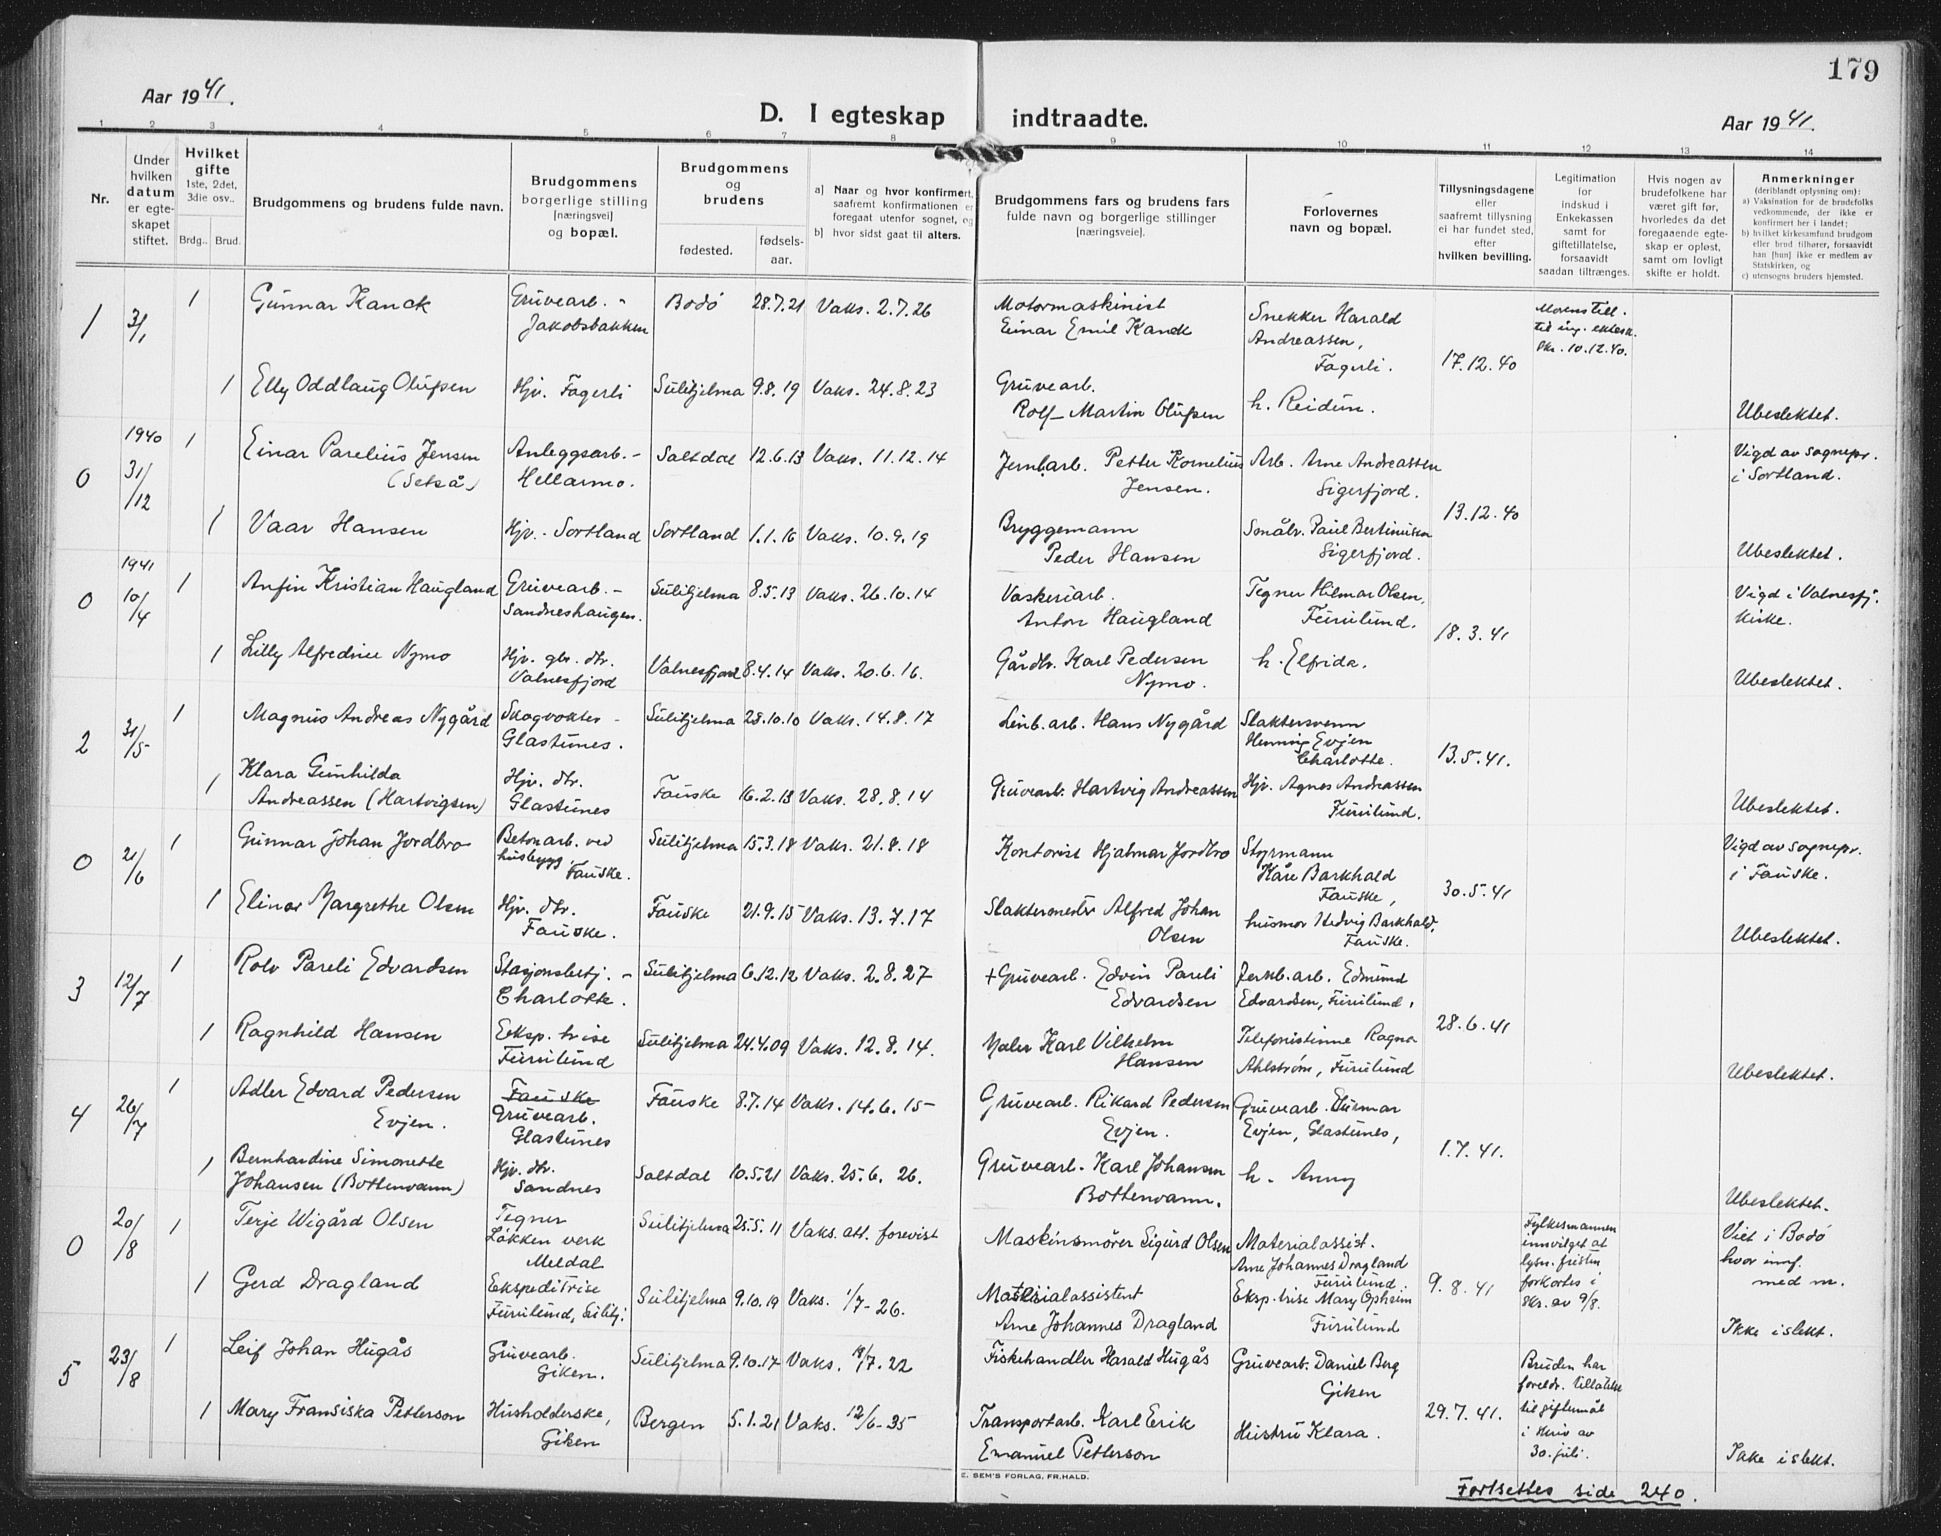 179
Aar 1941.
D. I egteskap indtraadte.
Aar 1941.
1 2 3 4 5 6 7 8 9 10 11 12 13 14
Nr.
Under
hvilken
datum
er egte-
skapet
stiftet.
Hvilket
gifte
1ste, 2det,
3die osv..
Brdg..
Brud.
Brudgommens og brudens fulde navn.
Brudgommens
borgerlige stilling
[næringsvei]
og bopæl.
Brudgommens
og
brudens
fødested.
fødsels-
aar.
a) Naar og hvor konfirmert,
saafremt konfirmationen er
foregaat utenfor sognet, og
b) hvor sidst gaat til alters.
Brudgommens fars og brudens fars
fulde navn og borgerlige stillinger
[næringsveie].
Forlovernes
navn og bopæl.
Tillysningsdagene
eller
saafremt tillysning
ei har fundet sted,
efter
hvilken bevilling.
Legitimation
for
indskud i
Enkekassen
samt for
giftetilladelse,
forsaavidt
saadan tiltrænges.
Hvis nogen av
brudefolkene har
været gift før,
hvorledes da det
foregaaende egte-
skap er opløst,
samt om lovligt
skifte er holdt.
Anmerkninger
(deriblandt oplysning om):
a) Vaksination for de brudefolks
vedkommende, der ikke er
konfirmert her i landet;
b) hvilket kirkesamfund brudgom
eller brud tilhører, forsaavidt
han [hun] ikke er medlem av
Statskirken, og
c) utensogns bruders hjemsted.
1 3/1 1 Gunnar Kanck Gruvearb. - Jakobsbakken Bodö 28.7.21 Vaks. 2.7.26
Motormaskinist Einar Emil Kanck
Snekker Harald Andreassen, Fagerli.
17.12.40
Morens till. til ing. ektesk. 10.12.40.
1 Elly Oddlaug Olufsen Hjv. Fagerli Sulitjelma 9.8.19 Vaks. 24.8.23
Gruvearb. Rolf Martin Olufsen
h. Reidun.
Ubeslektet.
0 1940 31/12 1 Einar Parelius Jensen (Setså) Anleggsarb. - Hellarmo. Saltdal 12.6.13 Vaks. 11.12.14
Petter Kornelius Jensen.
Arb. Arne Andreassen Sigerfjord.
13.12.40
Vigd av sognepr. i Sortland.
1 Vaar Hansen Hjv. - Sortland Sortland 1.1.16 Vaks. 10.9.19
Bryggemann Peder Hansen
Småbr. Paul Bertinusen Sigerfjord.
Ubeslektet.
0 1941 10/4 1 Anfin Kristian Haugland Gruvearb. - Sandneshaugen. Sulitjelma 8.5.13 Vaks. 26.10.14
Vaskeriarb. Anton Haugland
Tegner Hilmar Olsen, Furulund.
18.3.41
Vigd i Valnesfj. kirke.
1 Lilly Alfredine Nymo Hjv. gbr. dtr. Valnesfjord Valnesfjord 8.4.14 Vaks. 20.6.16.
Gårdbr. Karl Pedersen Nymo.
h. Elfrida.
Ubeslektet.
2 31/5 1 Magnus Andreas Nygård Skogvokter - Glastunes. Sulitjelma 28.10.10 Vaks. 14.8.17
Linb.arb. Hans Nygård
Slaktersvenn Henning Evjen Charlotte.
13.5.41.
1 Klara Gunhilda Andreassen (Hartvigsen) Hjv. dtr. Glastunes Fauske 16.2.13 Vaks. 28.8.14
Gruvearb. Hartvig Andreassen
Hjv. Agnes Andreassen Furulund.
Ubeslektet.
0 21/6 1 Gunnar Johan Jordbro Betonarb. ved husbygg. Fauske. Sulitjelma 15.3.18 Vaks. 21.8.18
Kontorist Hjalmar Jordbro
Styrmann Kåre Barkhald Fauske,
30.5.41
Vigd av sognepr. i Fauske.
1 Elinor Margrethe Olsen Hjv. dtr. Fauske. Fauske 21.9.15 Vaks. 13.7.17
Slaktermester Alfred Johan Olsen
husmor Hedvig Barkhald, Fauske.
Ubeslektet.
3 12/7 1 Rolv Pareli Edvardsen Stasjonsbetj. - Charlotte. Sulitjelma 6.12.12 Vaks. 2.8.27
+ Gruvearb. Edvin Pareli Edvardsen
Jernb.arb. Edmund Edvardsen, Furulund,
28.6.41
1 Ragnhild Hansen Eksp.trise Furulund Sulitjelma 24.4.09 Vaks. 12.8.14.
Maler Karl Vilhelm Hansen
Telefonistinne Ragna Ahlstrøm, Furulund
Ubeslektet.
4 26/7 1 Adler Edvard Pedersen Evjen. Fauske Gruvearb. Glastunes Fauske 8.7.14 Vaks. 14.6.15-
Gruvearb. Rikard Pedersen Evjen.
Gruvearb. Evjen, Glastunes,
1.7.41.
1 Bernhardine Simonette Johansen (Bottenvann) Hjv. dtr. Sandnes Saltdal 10.5.21 Vaks. 25.6.26.
Gruvearb. Karl Johansen Bottenvann.
h. Anny
Ubeslektet.
0 20/8 1 Terje Wigård Olsen Tegner Løkken verk Meldal Sulitjelma 25.5.11 Vaks. att. forevist
Maskinsmører Sigurd Olsen
Materialassist. Arne Johannes Dragland Furulund
9.8.41
Fylkesmannen innvilget at lysn. fristen forkortes i skr. av 9/8.
Viet i Bodö hvor innf. med nr.
1 Gerd Dragland Ekspeditrise Furulund, Sulitj. Sulitjelma 9.10.19 Vaks. 1/7-26.
Materialassistent Arne Johannes Dragland
Eksp.trise Mary Opheim Furulund
Ikke i slekt.
5 23/8 1 Leif Johan Hugås Gruvearb. Giken. Sulitjelma 9.10.17 Vaks. 18/7.22
Fiskehandler Harald Hugås
Gruvearb. Daniel Berg Giken
29.7.41.
Bruden har foreldr. tillatelse til giftermål i skriv av 30. juli.
1 Mary Fransiska Petterson Husholderske, Giken Bergen 5.1.21 Vaks. 12/6-35
Transportarb. Karl Erik Emanuel Petterson
Hustru Klara.
Ikke i slekt.
E. SEM'S FORLAG, FR.HALD.
Fortsettes side 240.